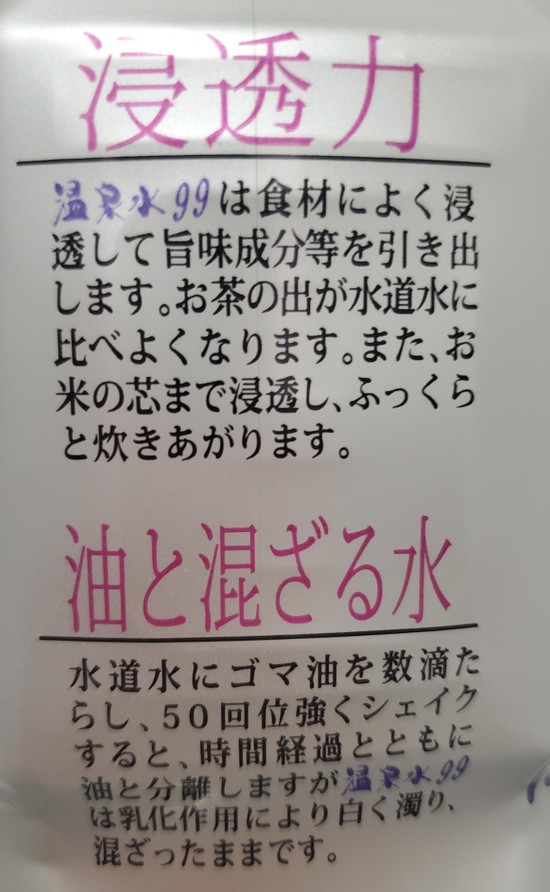 浸透力
温泉水99は食材によく浸
透して旨味成分等を引き出
します。お茶の出が水道水に
比べよくなります。また、お
米の芯まで浸透し、ふっくら
と炊きあがります。
油と混ざる水
水道水にゴマ油を数滴た
らし、50回位強くシェイク
すると、時間経過とともに
油と分離しますが温泉水99
は乳化作用により白く濁り、
混ざったままです。